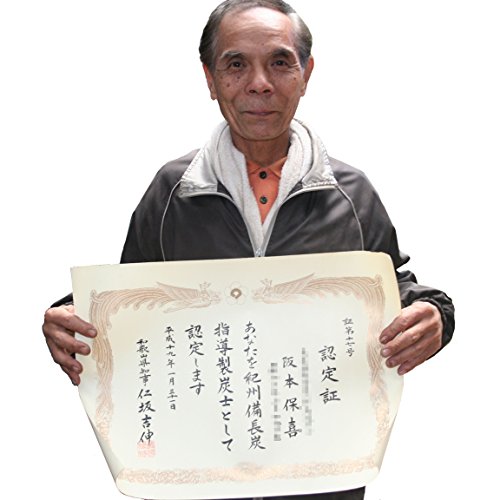 証第十七号
認定証
阪本保喜
あなたを紀州備長炭
指導製炭士として
認定します
平成十九年一月三十一日
和歌山県知事 仁坂吉伸